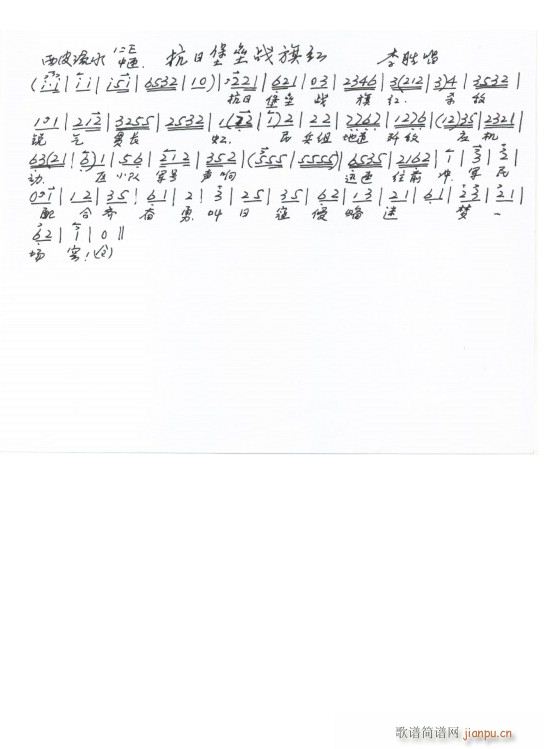 西皮流水 1=E 中速 抗日堡垒战旗红 李胜唱
(i i | i i | i 5 i | 6532 | 10) | 221 | 621 | 03 | 2346 | 3(212 | 3)4 | 3532 |
抗日 堡垒 战 旗 红. 杀敌
101 | 212 | 3255 | 2532 | 1(22 | 1)2 | 22 | 2262 | 1276 | (12)35 | 2321 |
锐气 贯长 虹. 民 兵组 地道 歼敌 应机
63(21 | 6)1 | 56 | 212 | 352 | (555 | 5555) | 6535 | 2162 | 1 | 3 | 2 |
动. 区 小队 军号 声响 迅速 往前 冲. 军 民
001 | 12 | 35 | 61 | 2 | 3 | 25 | 35 | 62 | 13 | 21 | 61 | 23 | 21 |
配合齐奋勇. 叫日寇侵略迷梦一
62 | 1 | 0 ||
场空!
歌谱简谱网
jianpu.cn